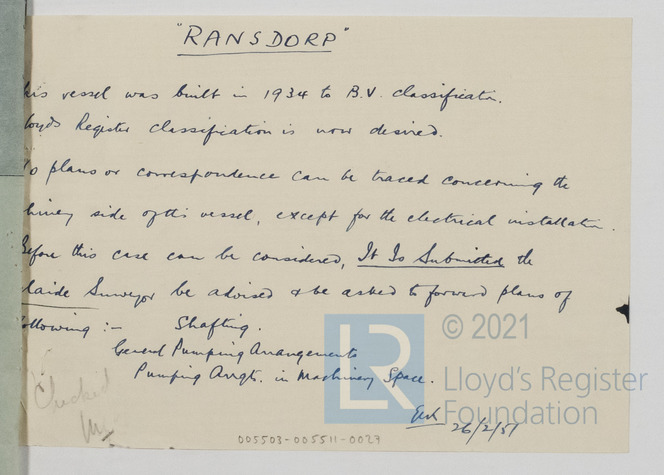 "RANSDORP"
his vessel was built in 1934 to B.V. classificatn.
loyds Register classification is now desired.
o plans or correspondence can be traced concerning the
hinery side of this vessel, except for the electrical installatn.
Before this case can be considered, It Is Submitted the
laide Surveyor be advised & be asked to forward plans of
ollowing :- Shafting.
General Pumping Arrangements
Pumping Arrgts. in Machinery Space.
26/2/51
Checked
005503-005511-0027
LR
© 2021
Lloyd's Register
Foundation